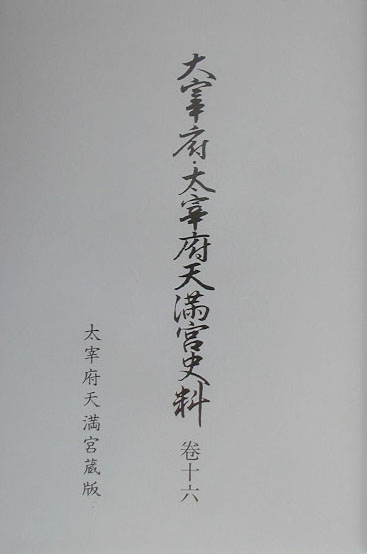 大宰府・太宰府天満宮史料 巻十六
太宰府天満宮蔵版